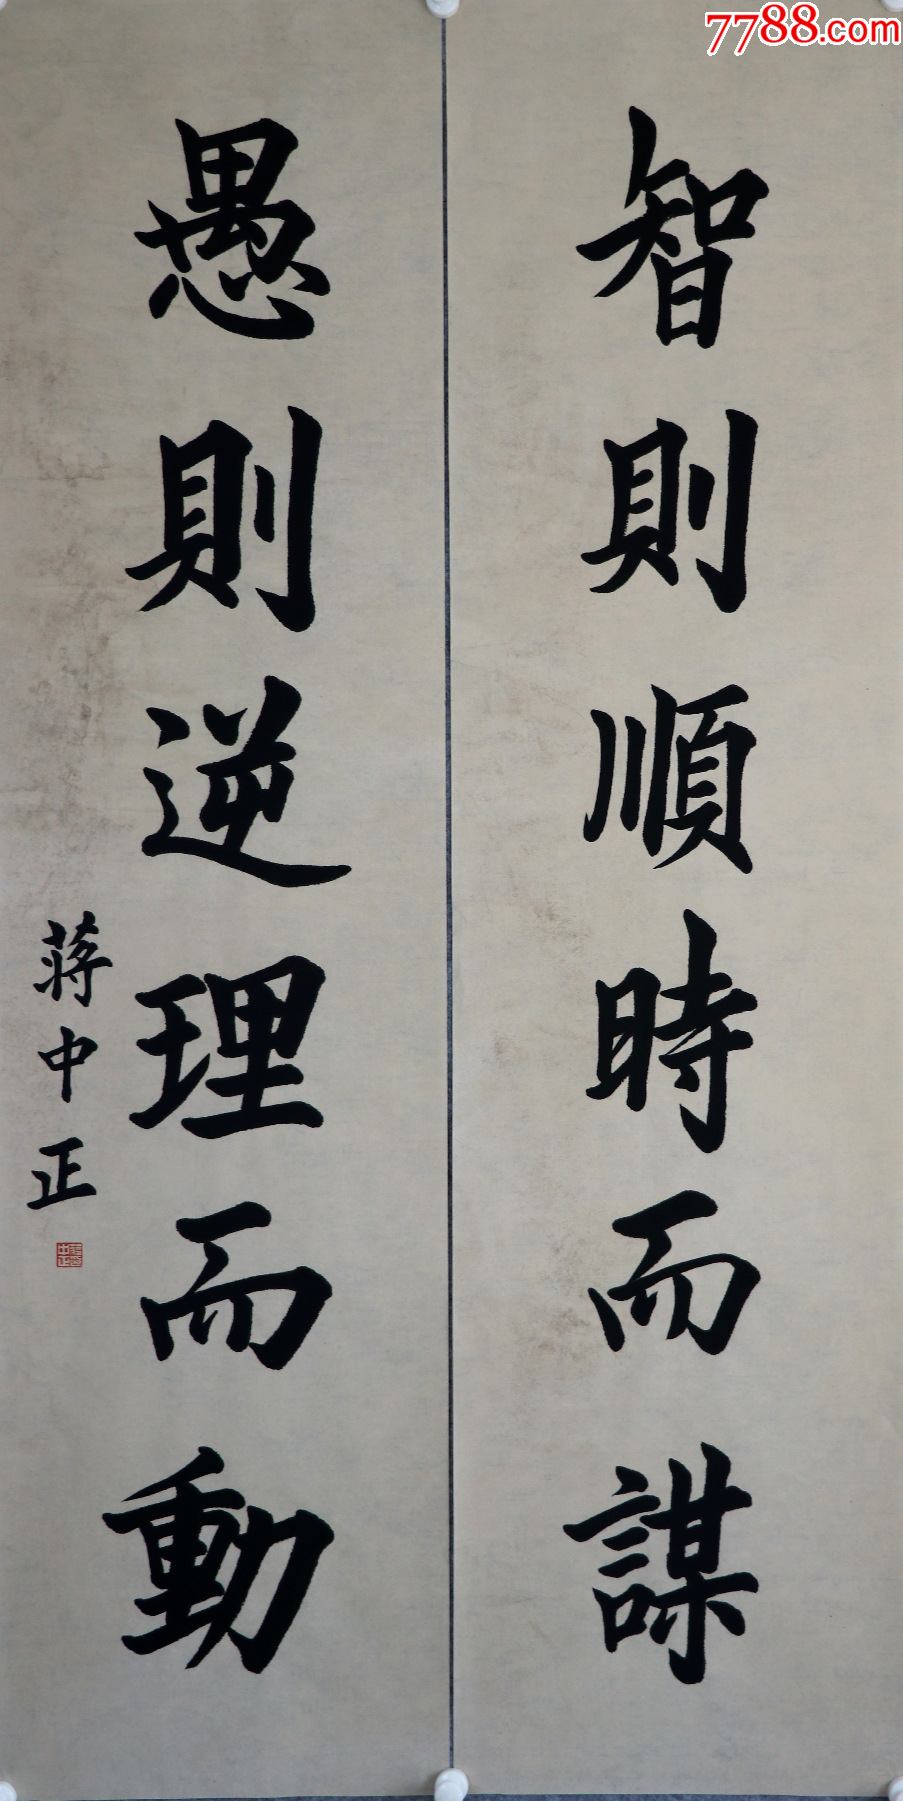 7788.com
智則順時而謀
愚則逆理而動
蔣中正